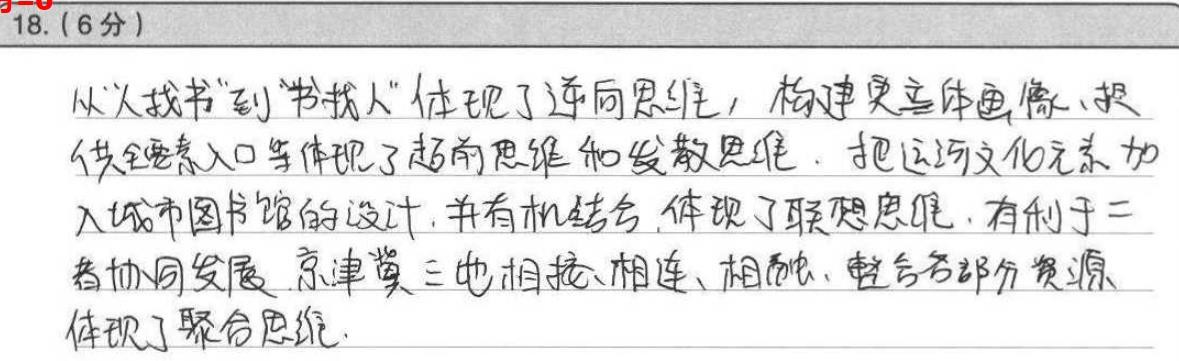 18.（6分）
从“人找书”到“书找人”体现了逆向思维，构建更立体画像、提
供全要素入口等体现了超前思维和发散思维．把运河文化元素加
入城市图书馆的设计．并有机结合，体现了联想思维．有利于二
者协同发展．京津冀三地相接、相连、相融、整合各部分资源
体现了聚合思维．